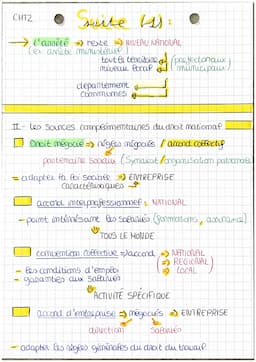 CH12
Suite (1) :
→ L'arrêté → reste ⇒ NIVEAU NATIONAL
(ex arrêté ministériel)
tout le territoire
niveau local ⇒ (préfectoraux municipaux)
département
communes
II - Les sources complémentaires du droit national
Droit négocié ⇒ règles négociés / accord collectif
partenaires sociaux (Syndicat/organisation patronale)
- adapter la loi société → ENTREPRISE
caractéristiques
accord interprofessionnel : NATIONAL
- point intéressant les salariés (formations, assurance)
TOUS LE MONDE
convention collective ⇒ accord → NATIONAL
(→ REGIONAL)
(→ LOCAL)
- les conditions d'emploi
- garanties aux salariés
ACTIVITÉ SPÉCIFIQUE
accord d'entreprise → négociés → ENTREPRISE
direction salariés
- adapter les règles générales du droit du travail